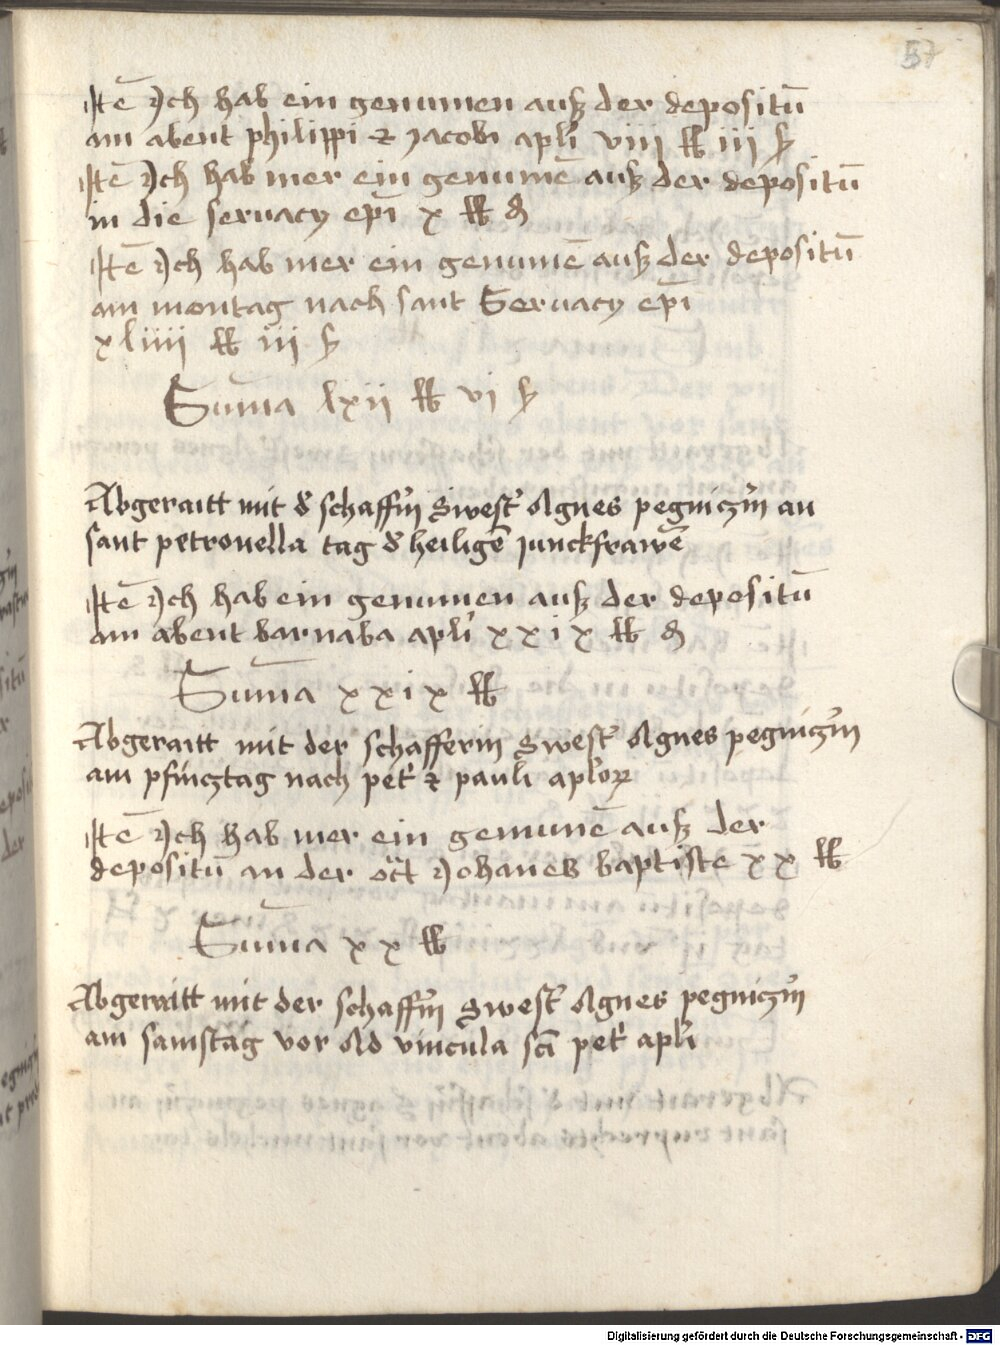 57
Itē Jch hab ein genumen auß der depositū
am abent philippi et jacobi apl'i viii lb iii ß
Itē Jch hab mer ein genumē auß der depositū
in die servacy ep̄i x lb d
Itē Jch hab mer ein genumē auß der depositū
am montag nach sant Servacy ep̄i
xliiii lb iii ß
Sum̄a lxii lb vi ß
Abgeraitt mit d' schaff'in Swest' Agnes pegnicz'in an
sant petronella tag d' heiligē junckfrawē
Itē Jch hab ein genumen auß der depositū
am abent barnaba apl'i xxix lb d
Sum̄a xxix lb
Abgeraitt mit der schafferin Swest' Agnes pegnicz'in
am pfincztag nach pet' et pauli apl'oꝝ
Itē Jch hab mer ein genumē auß der
depositū an der oct' Johanes baptiste xx lb
Sum̄a xx lb
Abgeraitt mit der schaff'in Swest' Agnes pegnicz'in
am samstag vor Ad vincula sc̄i pet' apl'i
Digitalisierung gefördert durch die Deutsche Forschungsgemeinschaft - DFG